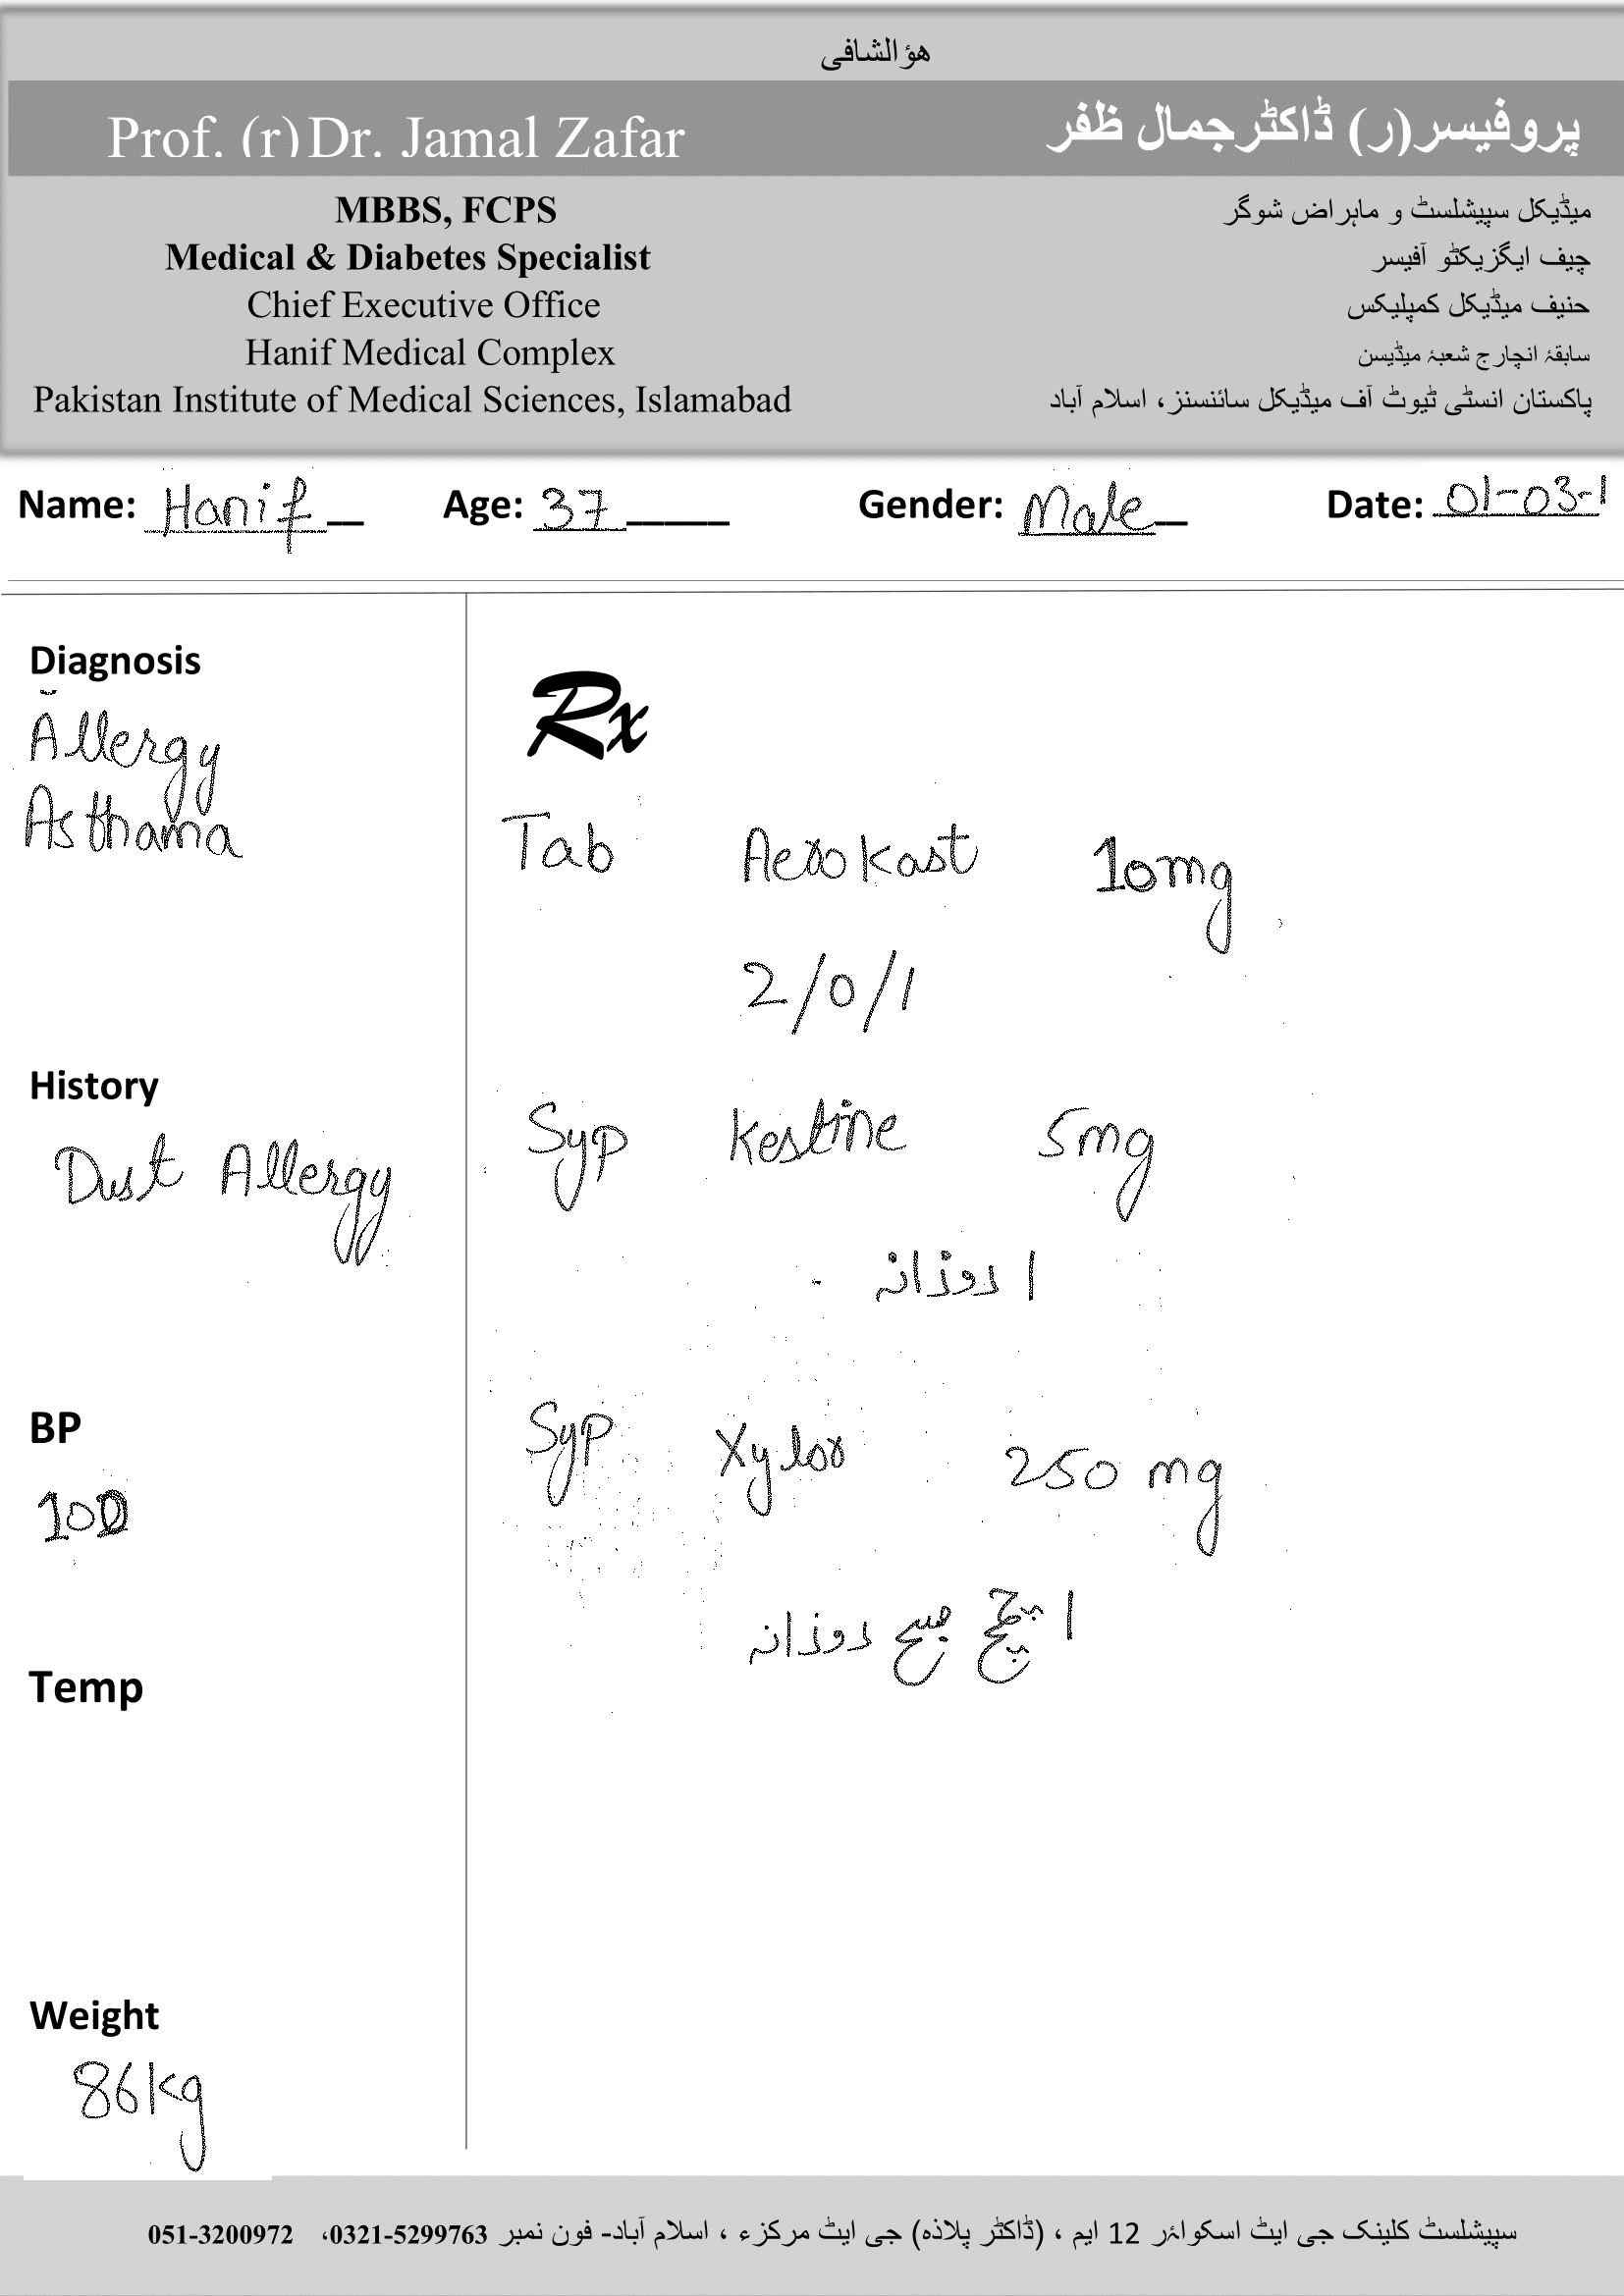 هؤالشافی
Prof. (r) Dr. Jamal Zafar
پروفیسر(ر) ڈاکٹرجمال ظفر
MBBS, FCPS
Medical & Diabetes Specialist
Chief Executive Office
Hanif Medical Complex
Pakistan Institute of Medical Sciences, Islamabad
میڈیکل سپیشلسٹ و ماہراض شوگر
چیف ایگزیکٹو آفیسر
حنیف میڈیکل کمپلیکس
سابقۂ انچارج شعبۂ میڈیسن
پاکستان انسٹی ٹیوٹ آف میڈیکل سائنسنز، اسلام آباد
Name: Hanif Age: 37 Gender: Male Date: 01-03-1
Diagnosis
Allergy
Asthama
History
Dust Allergy
BP
100
Temp
Weight
86kg
Rx
Tab Aerokast 10mg
2/0/1
Syp Kestine 5mg
ا روزانہ
Syp Xylor 250 mg
ا چمچ صبح روزانہ
سپیشلسٹ کلینک جی ایٹ اسکوائر 12 ایم ، (ڈاکٹر پلاذہ) جی ایٹ مرکزء ، اسلام آباد- فون نمبر 0321-5299763، 051-3200972